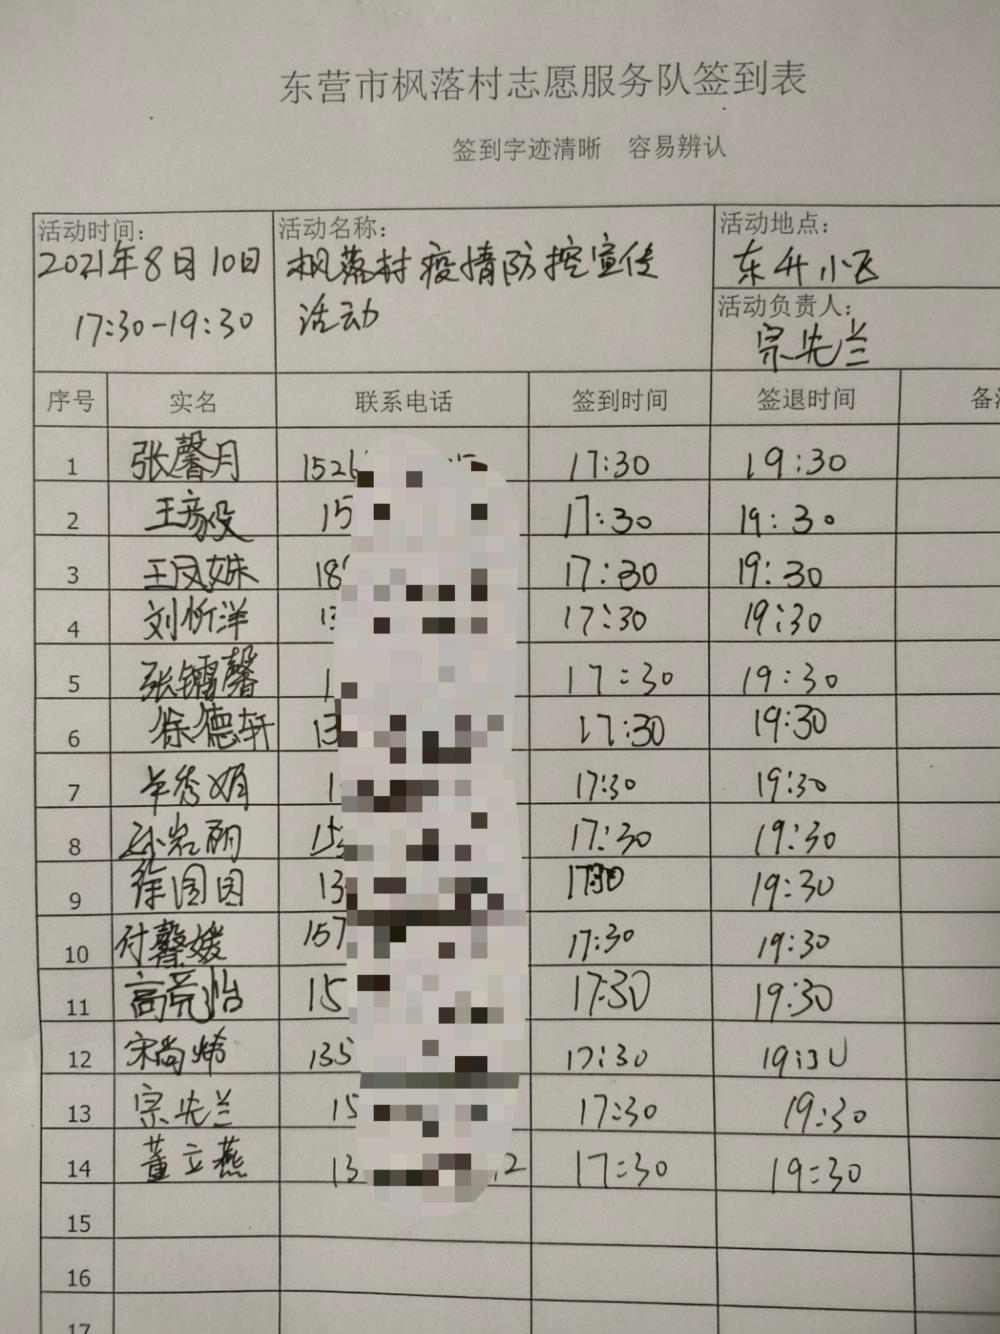 东营市枫落村志愿服务队签到表
签到字迹清晰 容易辨认
活动时间: 活动名称: 活动地点:
2021年8月10日 枫落村疫情防控宣传 东升小飞
17:30-19:30 活动 活动负责人:
宗先兰
序号 实名 联系电话 签到时间 签退时间
1 张馨月 1526 17:30 19:30
2 15 17:30 19:30
3 王凤姝 18 17:30 19:30
4 刘忻洋 13 17:30 19:30
5 17:30 19:30
6 徐德轩 13 17:30 19:30
7 1 17:30 19:30
8 15 17:30 19:30
9 13 17:30 19:30
10 付馨媛 157 17:30 19:30
11 15 17:30 19:30
12 135 17:30 19:30
13 宗先兰 15 17:30 19:30
14 董立燕 13 12 17:30 19:30
15
16
17